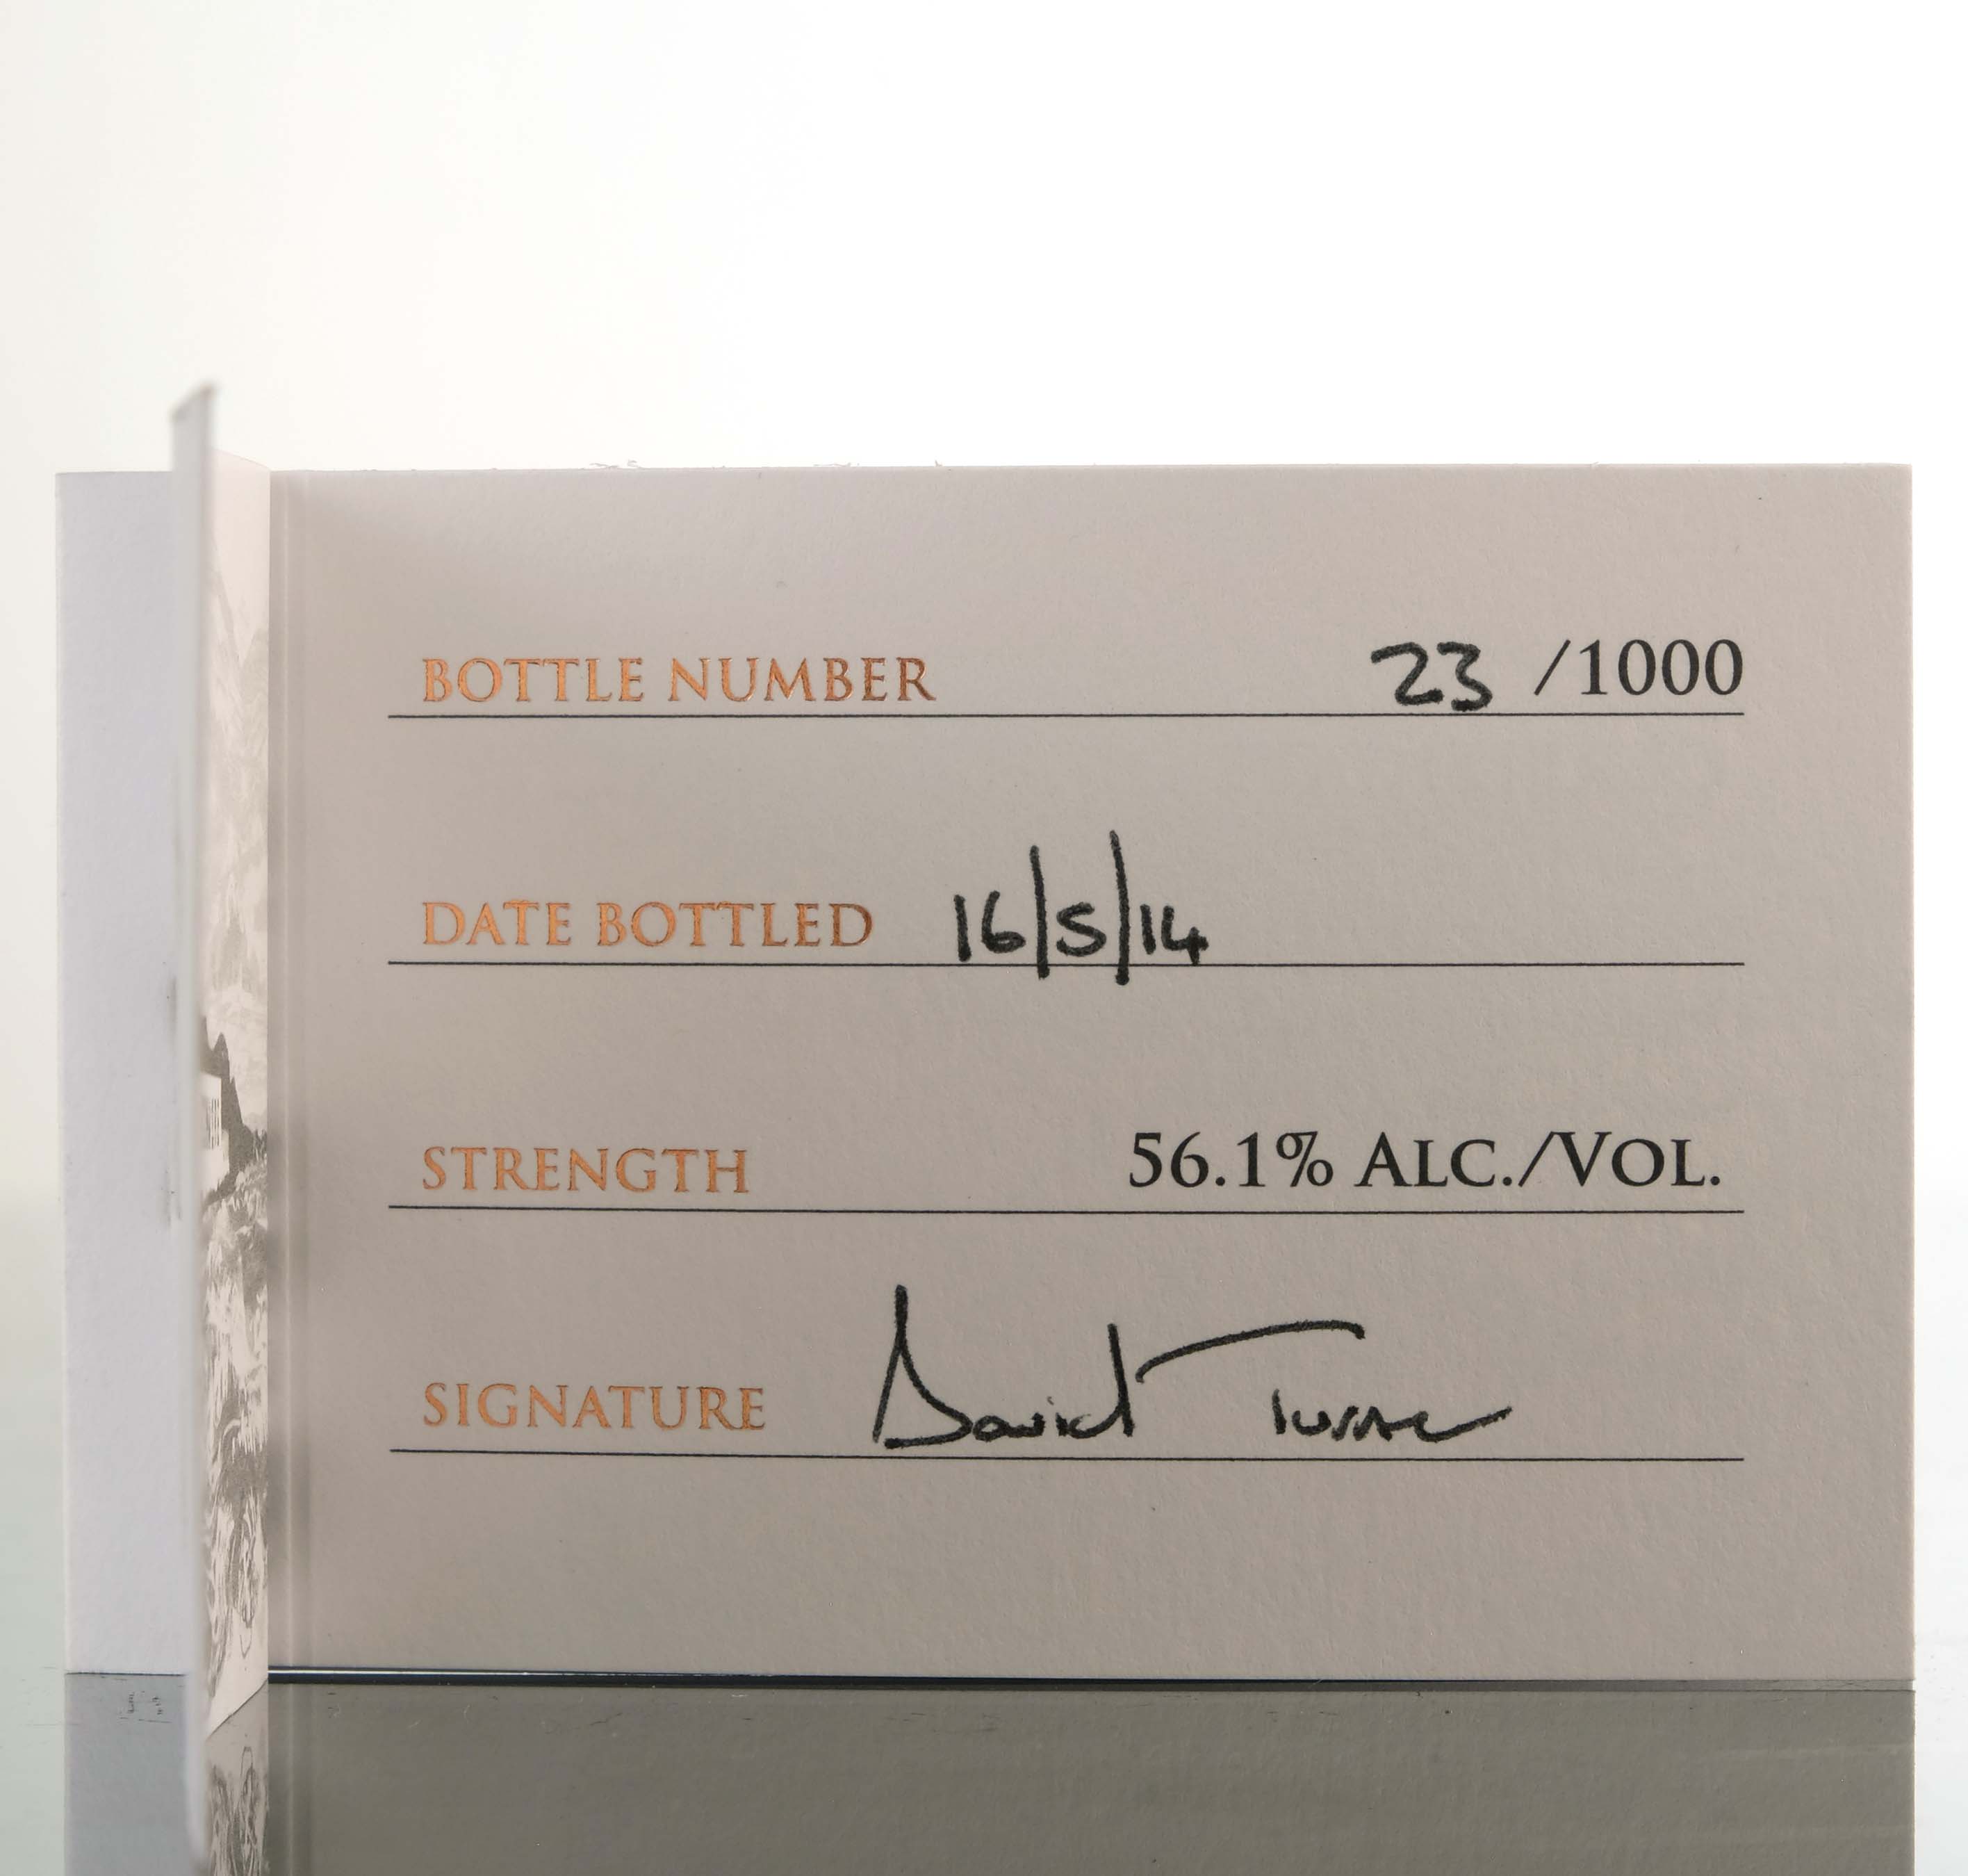 BOTTLE NUMBER 23 /1000
DATE BOTTLED 16/5/14
STRENGTH 56.1% ALC./VOL.
SIGNATURE David Turner